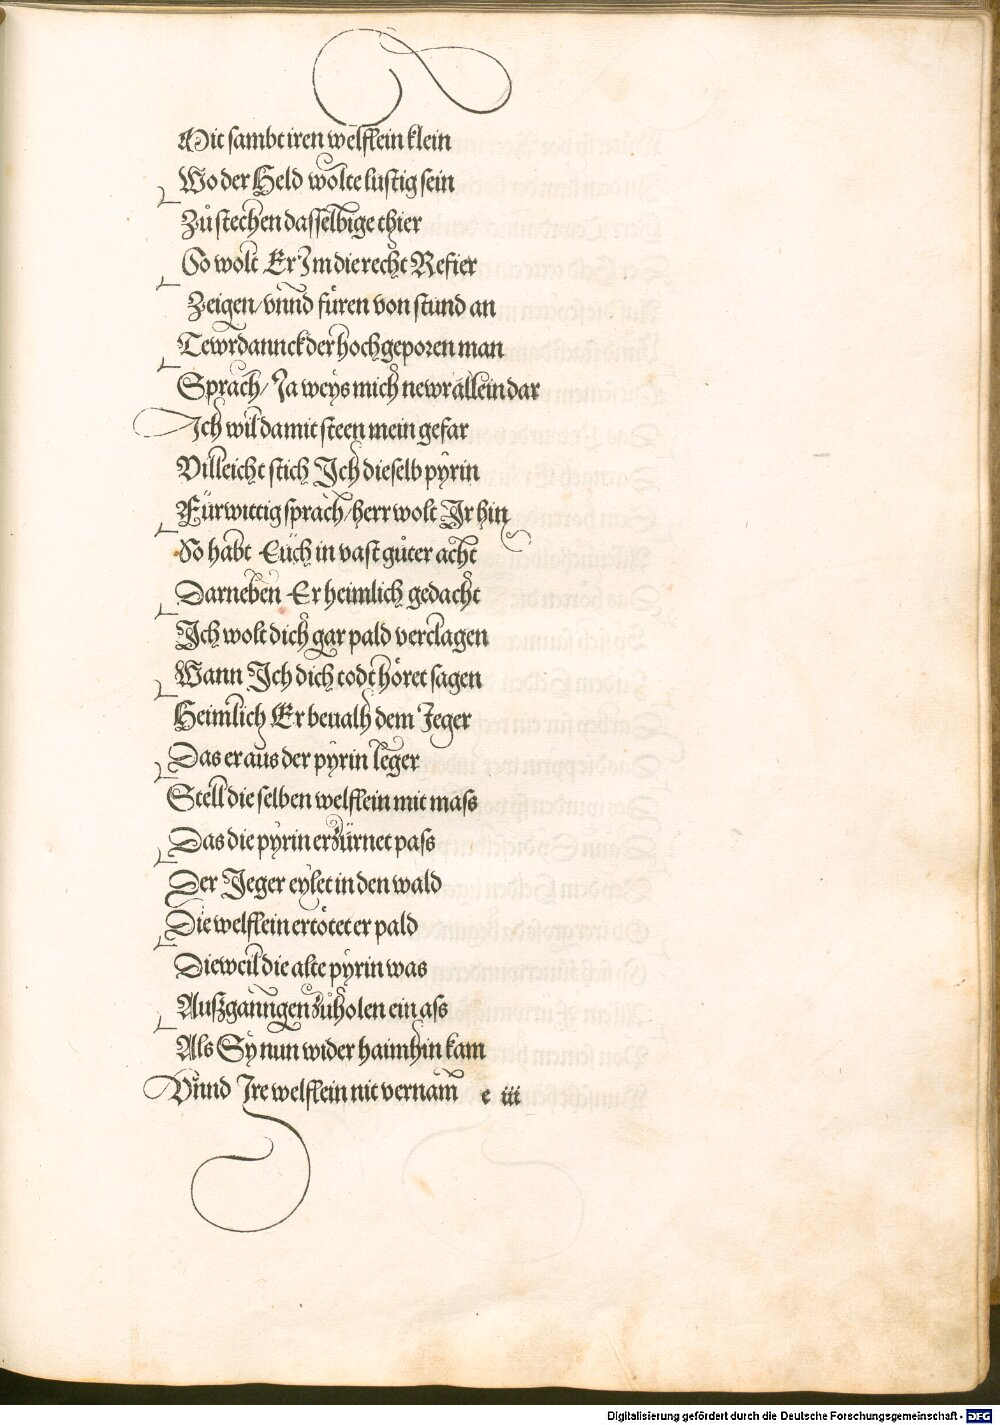 Mit sambt iren welfflein klein
Wo der Held wolte lustig sein
Zuͦ stechen dasselbige thier
So wolt Er Im die recht Refier
Zeigen/ vnnd fuͤren von stund an
Tewrdannck der hochgeporen man
Sprach/ Ja weys mich newr allein dar
Ich wil damit steen mein gefar
Villeicht stich Ich dieselb pyrin
Fürwittig sprach/ herr wolt Ir hin
So habt Eüch in vast guͦter acht
Darneben Er heimlich gedacht
Ich wolt dich gar pald verclagen
Wann Ich dich todt hoͤret sagen
Heimlich Er beualh dem Jeger
Das er aus der pyrin leger
Stell die selben welfflein mit mass
Das die pyrin erzürnet pass
Der Jeger eylet in den wald
Die welfflein ertoͤtet er pald
Dieweil die alte pyrin was
Außganngen zuͦ holen ein ass
Als Sy nun wider haimhin kam
Vnnd Ire welfflein nit vernam e iii
Digitalisierung gefördert durch die Deutsche Forschungsgemeinschaft - DFG